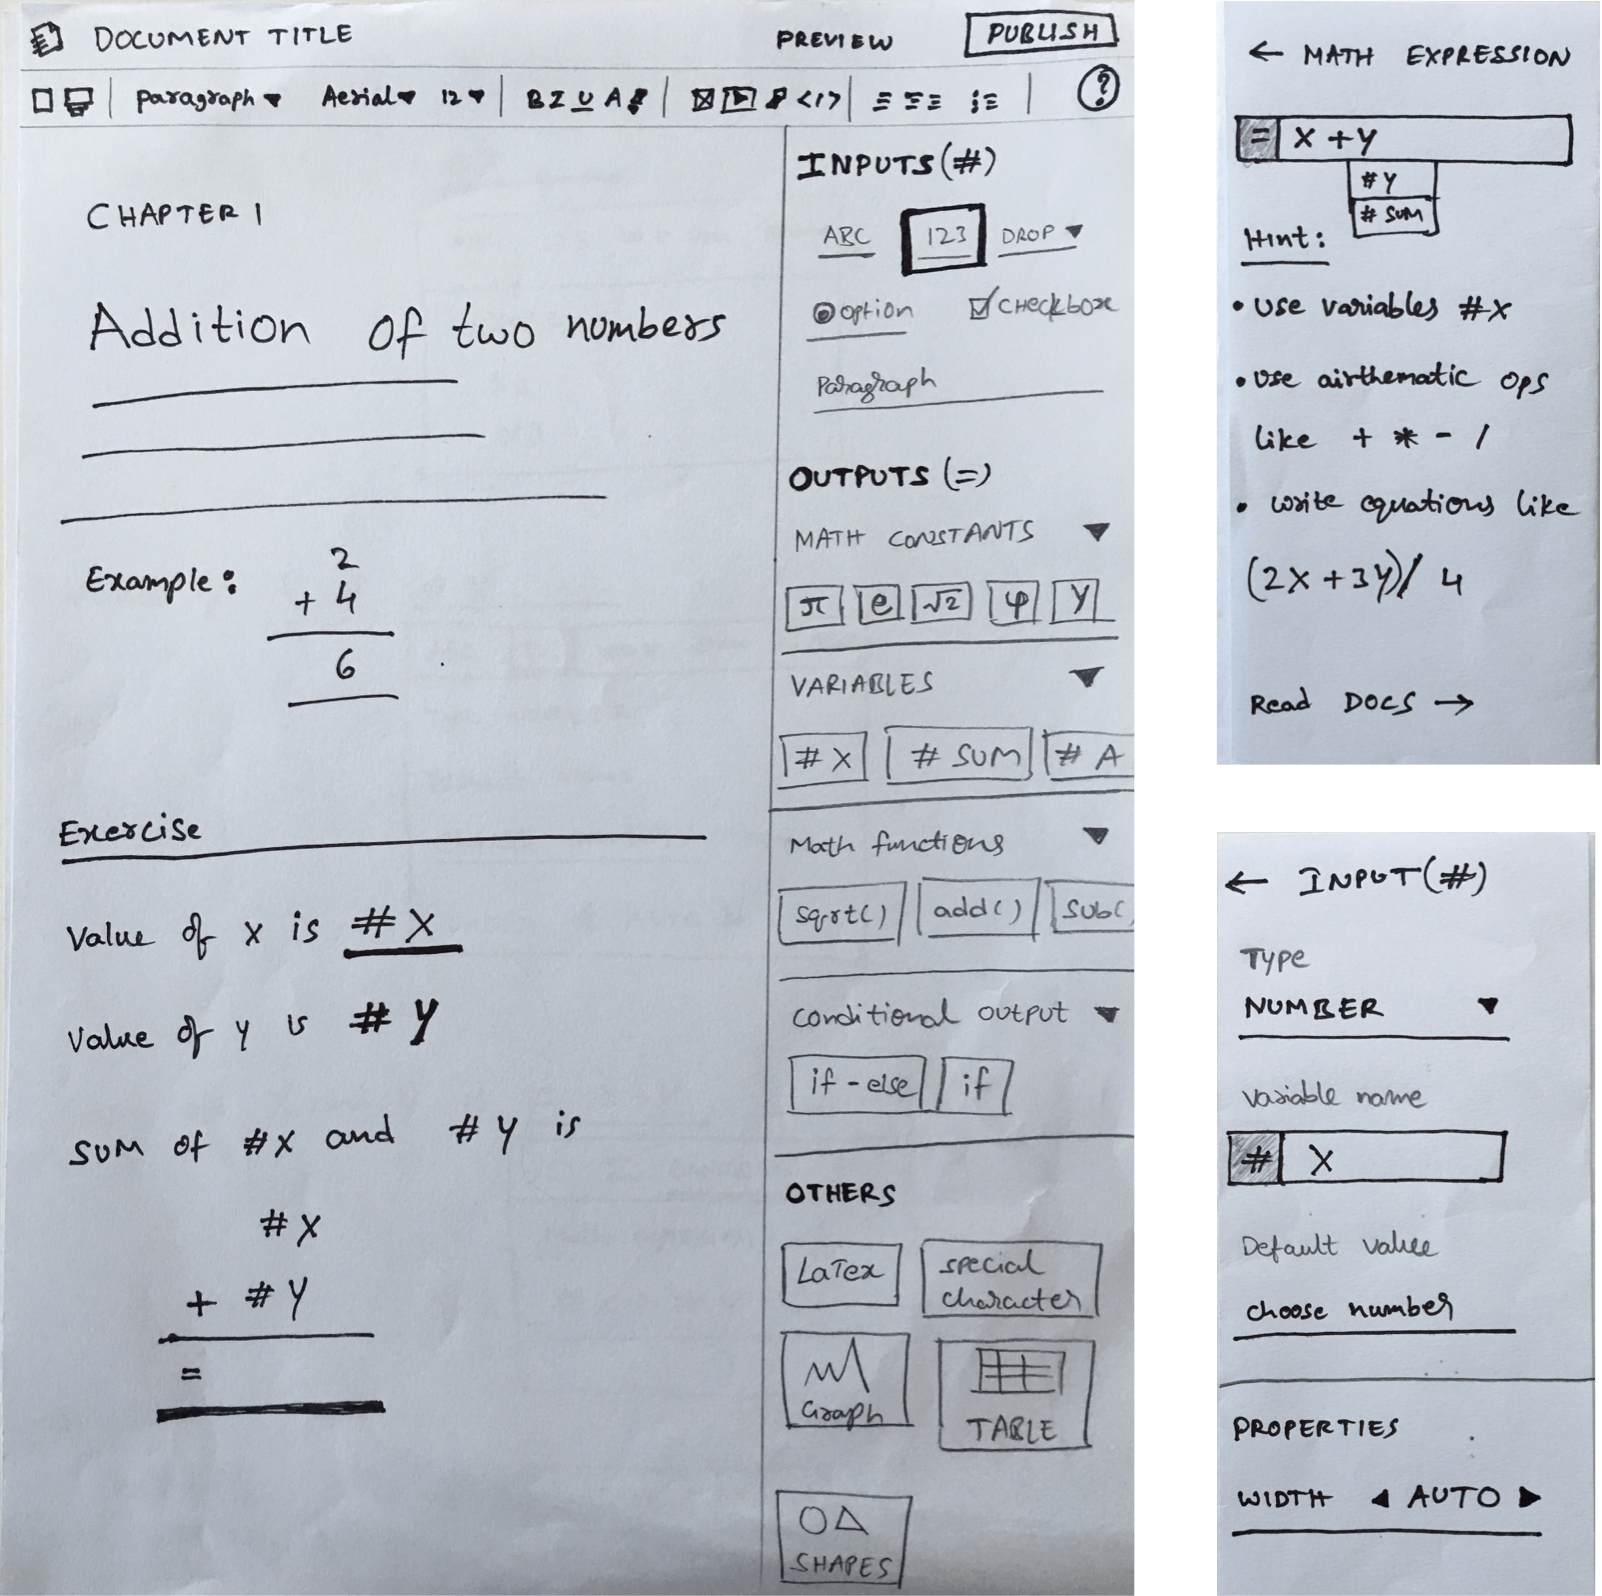 DOCUMENT TITLE
PREVIEW
PUBLISH
paragraph ▾ Aerial ▾ 12 ▾ B I U A </> ?
CHAPTER 1
Addition of two numbers
Example:
2
+ 4
6
Exercise
Value of x is #X
Value of y is #Y
SUM of #X and #Y is
#X
+ #Y
=
INPUTS (#)
ABC 123 DROP ▼
option checkbox
Paragraph
OUTPUTS (=)
MATH CONSTANTS ▼
π e √2 φ γ
VARIABLES ▼
#X #SUM #A
Math functions ▼
sqrt() add() sub(
Conditional output ▼
if-else if
OTHERS
LaTex special
character
Graph TABLE
SHAPES
← MATH EXPRESSION
= X + Y
#Y
#SUM
Hint:
• Use variables #X
• Use airthematic ops
like + * - /
• write equations like
(2X + 3Y)/ 4
Read DOCS →
← INPUT (#)
Type
NUMBER ▼
Variable name
# X
Default value
choose number
PROPERTIES
WIDTH ◀ AUTO ▶